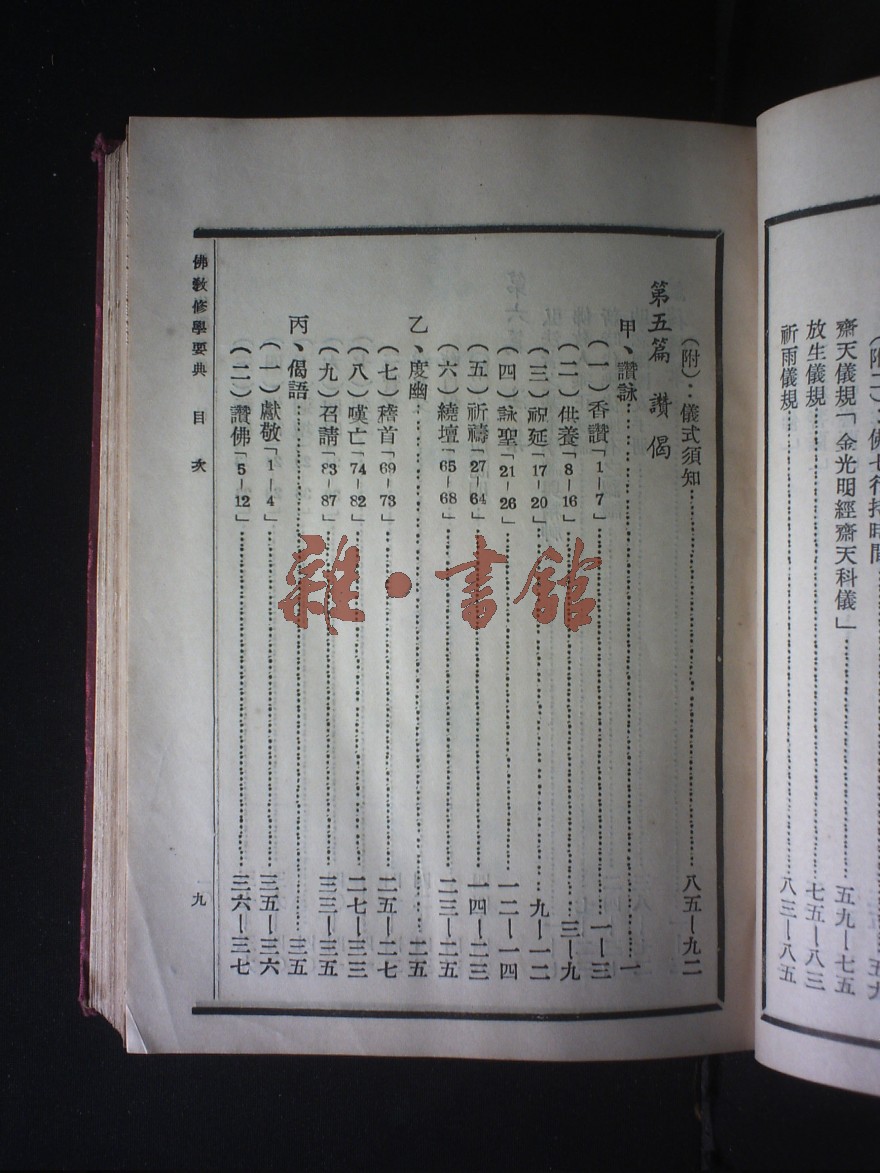 齋天儀規「金光明經齋天科儀」 五九—七五
放生儀規 七五—八三
祈雨儀規 八三—八五
(附):儀式須知 八五—九二
第五篇 讚偈
甲、讚詠 一
(一)香讚「1—7」 一—三
(二)供養「8—16」 三—九
(三)祝延「17—20」 九—一二
(四)詠聖「21—26」 一二—一四
(五)祈禱「27—64」 一四—二三
(六)繞壇「65—68」 二三—二五
乙、度幽 二五
(七)稽首「69—73」 二五—二七
(八)嘆亡「74—82」 二七—三三
(九)召請「83—87」 三三—三五
丙、偈語 三五
(一)獻敬「1—4」 三五—三六
(二)讚佛「5—12」 三六—三七
佛教修學要典 目次 九
雜·書館